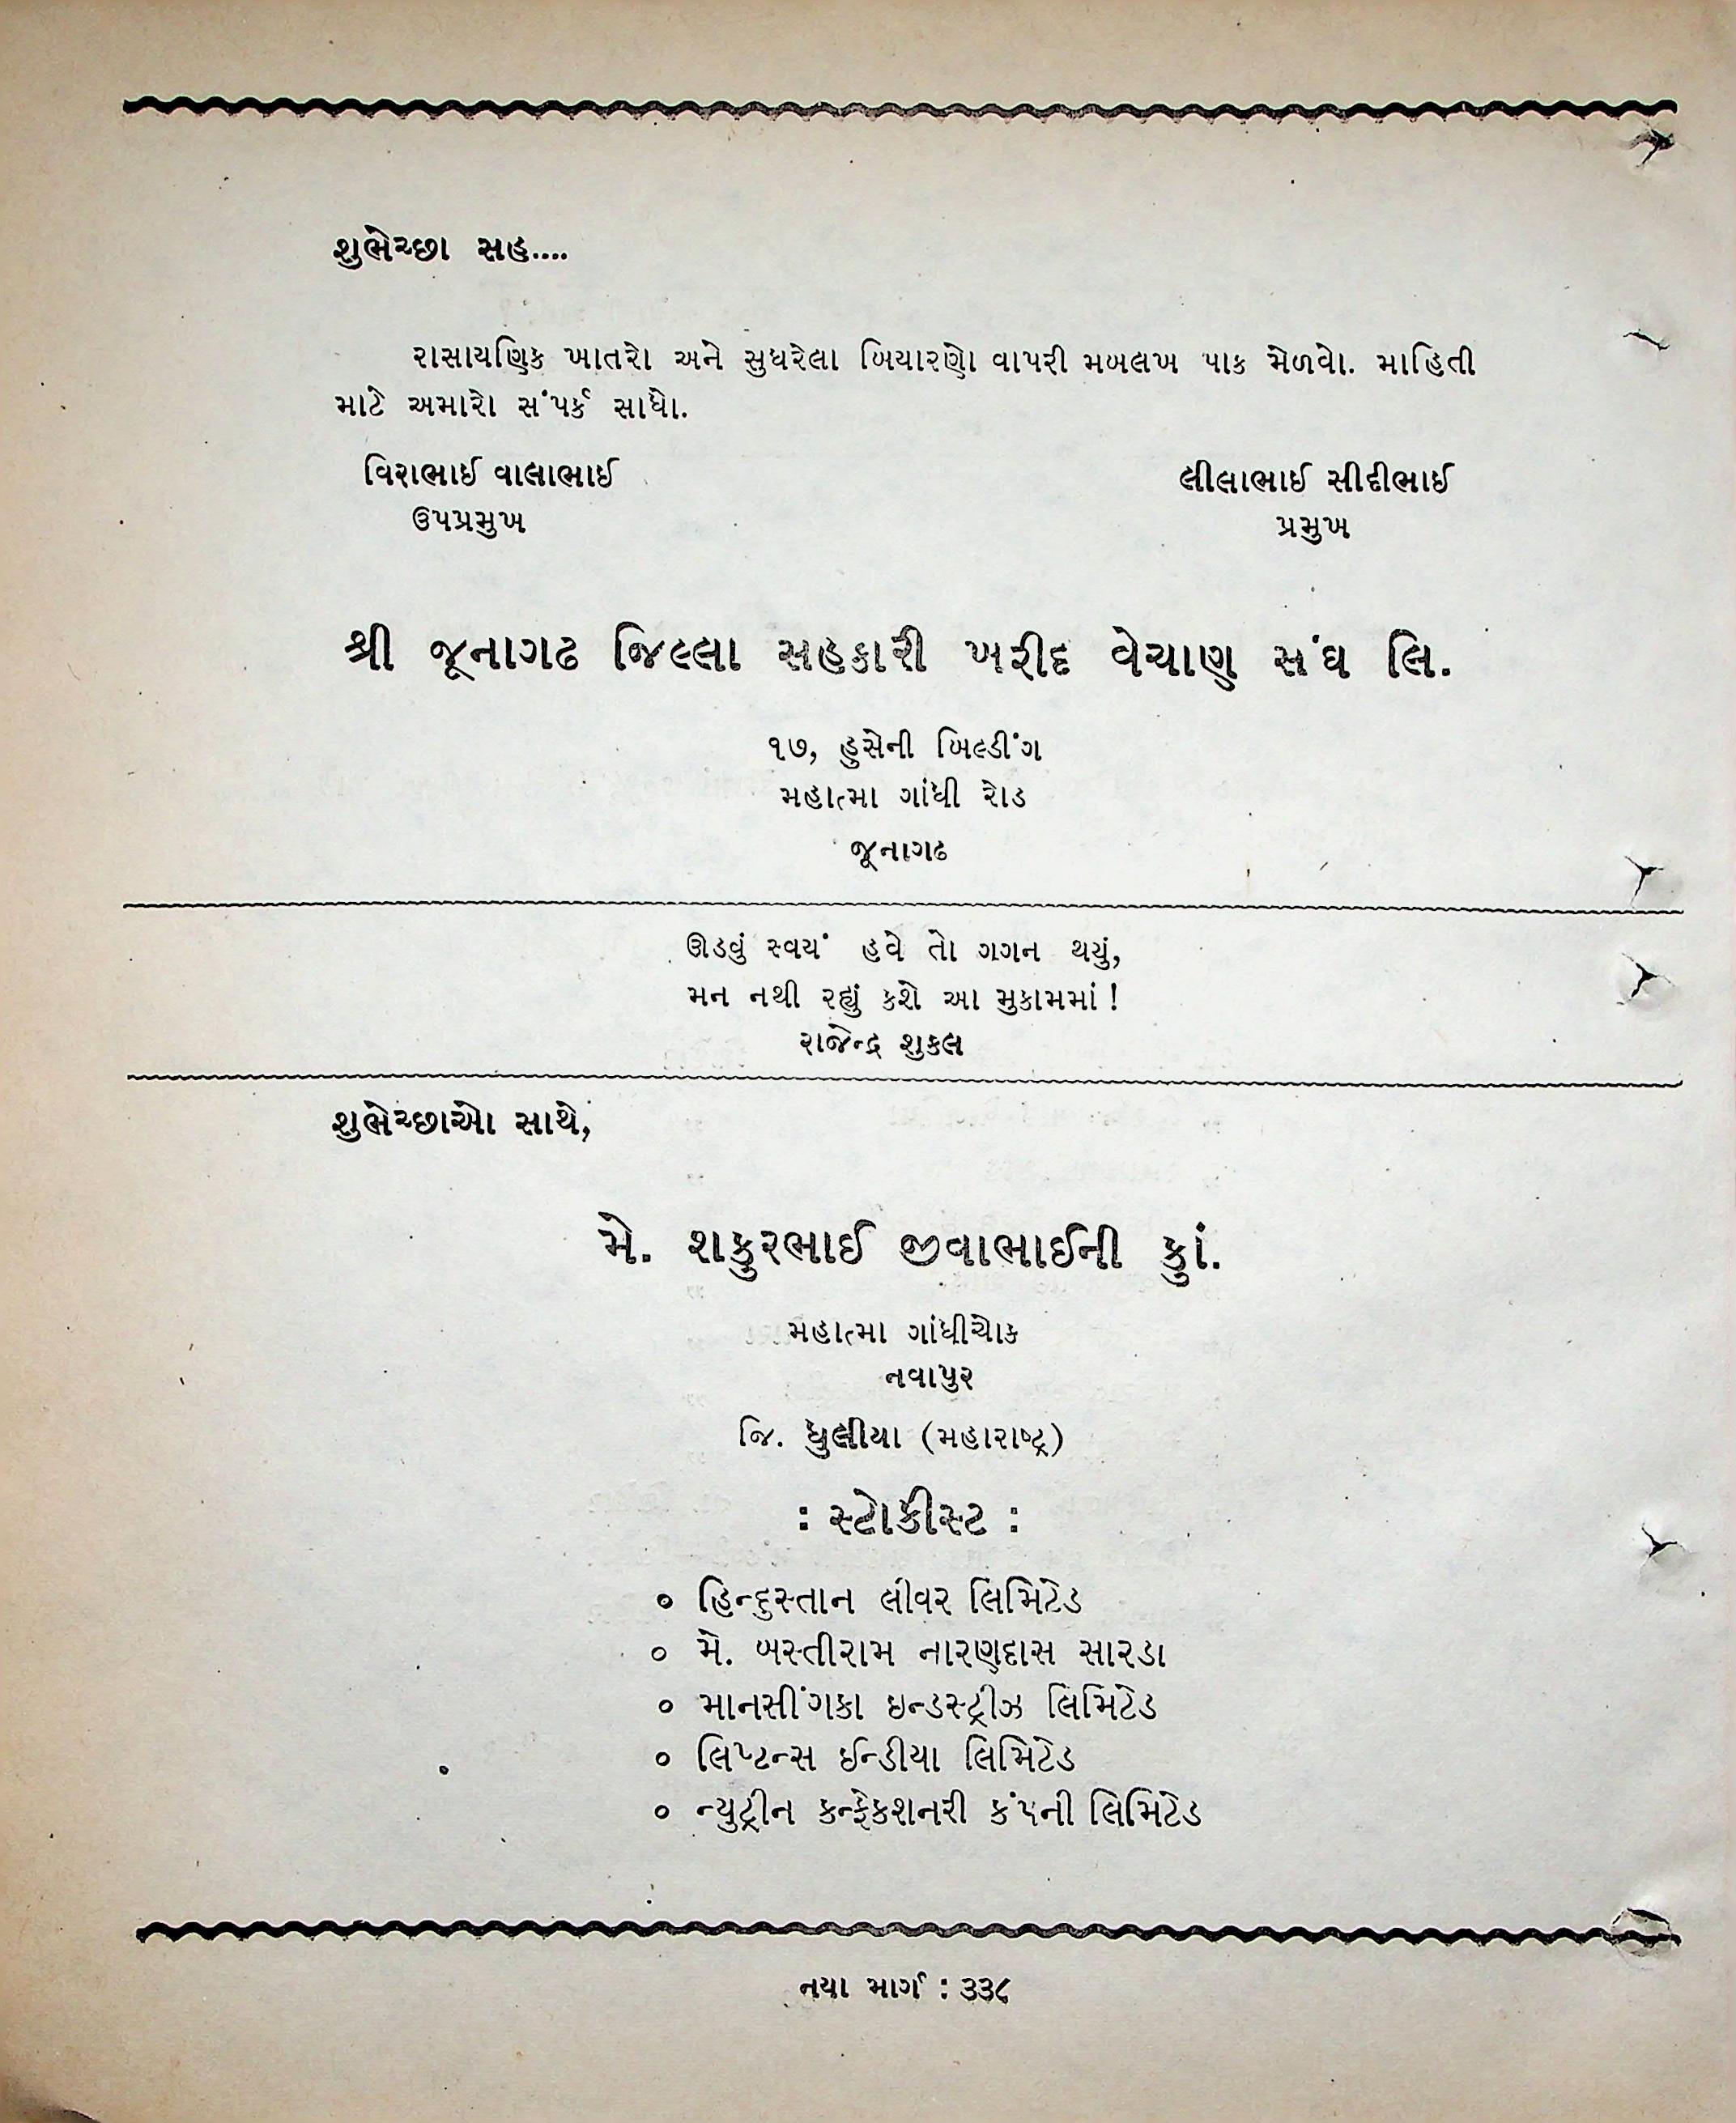 શુભેચ્છા સહ....
રાસાયણિક ખાતરો અને સુધરેલા બિયારણો વાપરી મબલખ પાક મેળવો. માહિતી
માટે અમારો સંપર્ક સાધો.
વિરાભાઈ વાલાભાઈ
ઉપપ્રમુખ
લીલાભાઈ સીદીભાઈ
પ્રમુખ
શ્રી જૂનાગઢ જિલ્લા સહકારી ખરીદ વેચાણ સંઘ લિ.
૧૭, હુસેની બિલ્ડીંગ
મહાત્મા ગાંધી રોડ
જૂનાગઢ
ઊડવું સ્વયં હવે તો ગગન થયું,
મન નથી રહ્યું કશે આ મુકામમાં !
રાજેન્દ્ર શુકલ
શુભેચ્છાઓ સાથે,
મે. શકુરભાઈ જીવાભાઈની કુાં.
મહાત્મા ગાંધીચોક
નવાપુર
જિ. ધુલીયા (મહારાષ્ટ્ર)
: સ્ટોકીસ્ટ :
૦ હિન્દુસ્તાન લીવર લિમિટેડ
૦ મે. બસ્તીરામ નારણદાસ સારડા
૦ માનસીંગકા ઇન્ડસ્ટ્રીઝ લિમિટેડ
૦ લિપ્ટન્સ ઈન્ડીયા લિમિટેડ
૦ ન્યુટ્રીન કન્ફેકશનરી કંપની લિમિટેડ
નયા માર્ગ : ૩૩૮